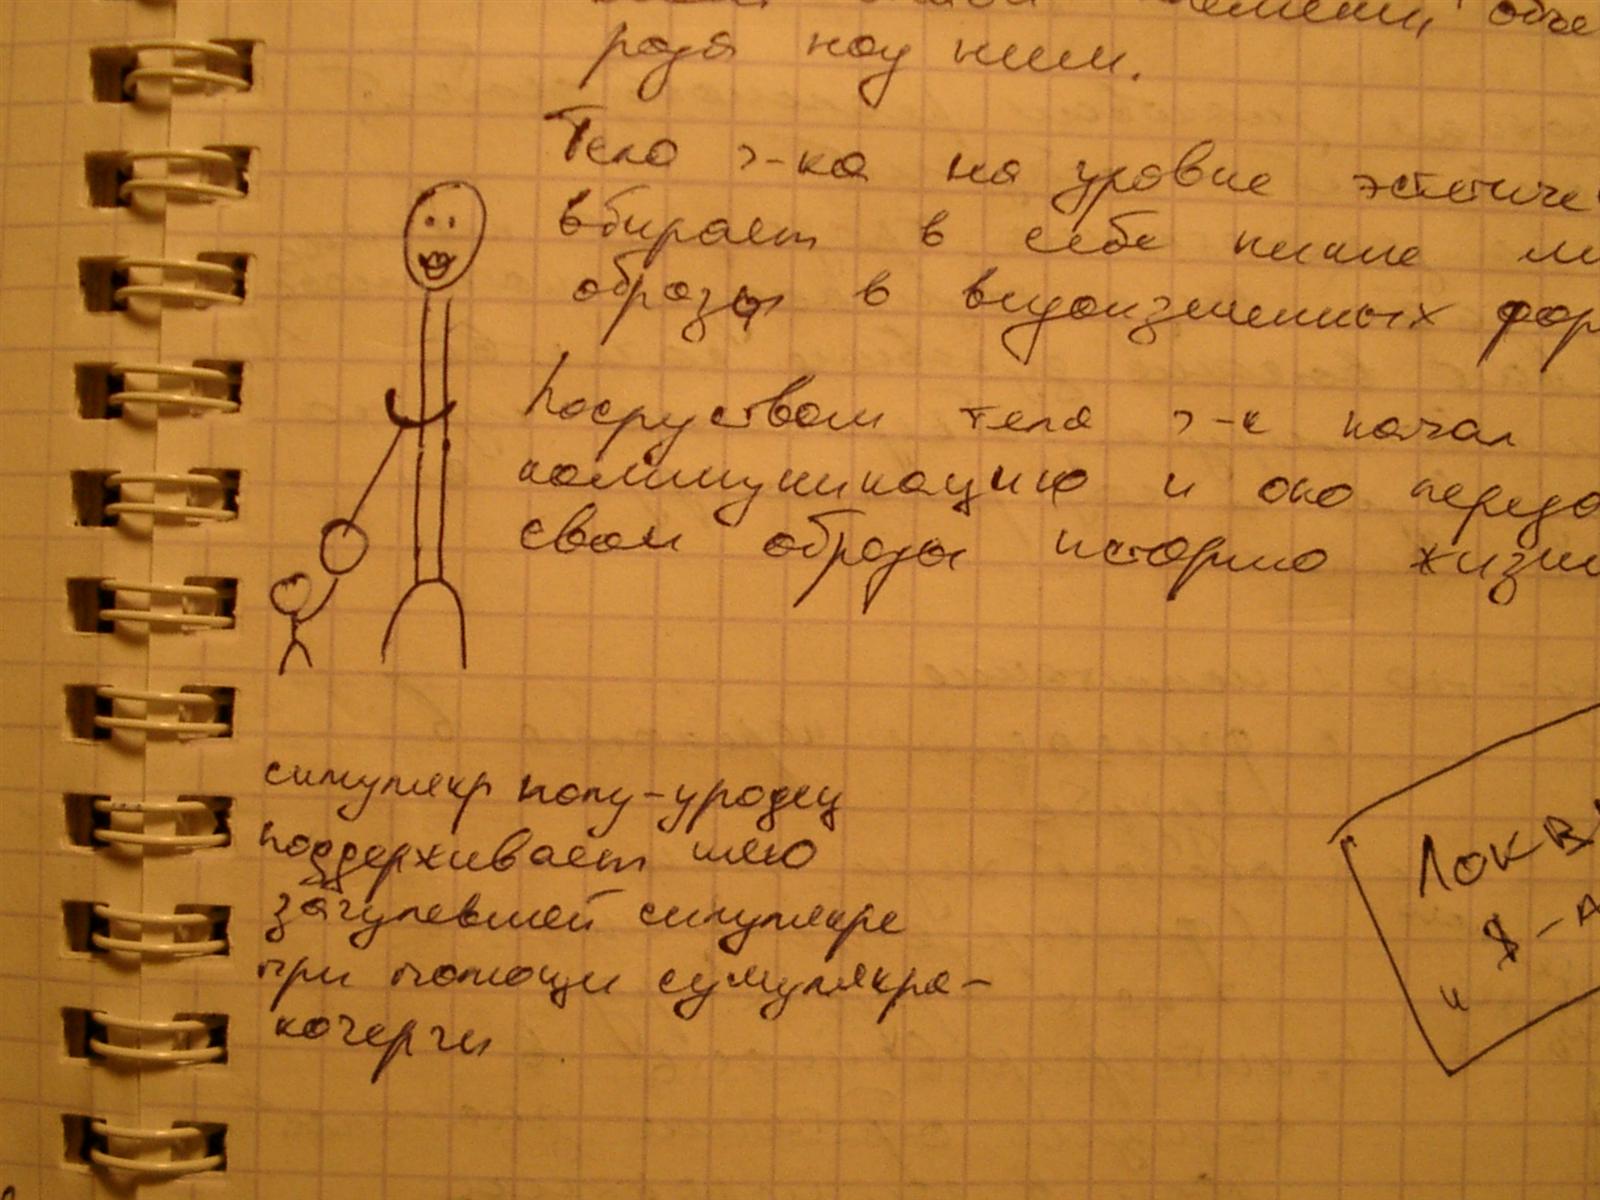 рода над ним.
Тело ч-ка на уровне эстетиче
вбирает в себе некие
образы в видоизменных фор
Посруством тела ч-к начал
коммуникацию и оно переда
свои образы историю жизни
симулякр полу-уродец
поддерживает шею
загулевшей симулякре
при помощи сумулякра-
кочерги
ЛОКВ
и